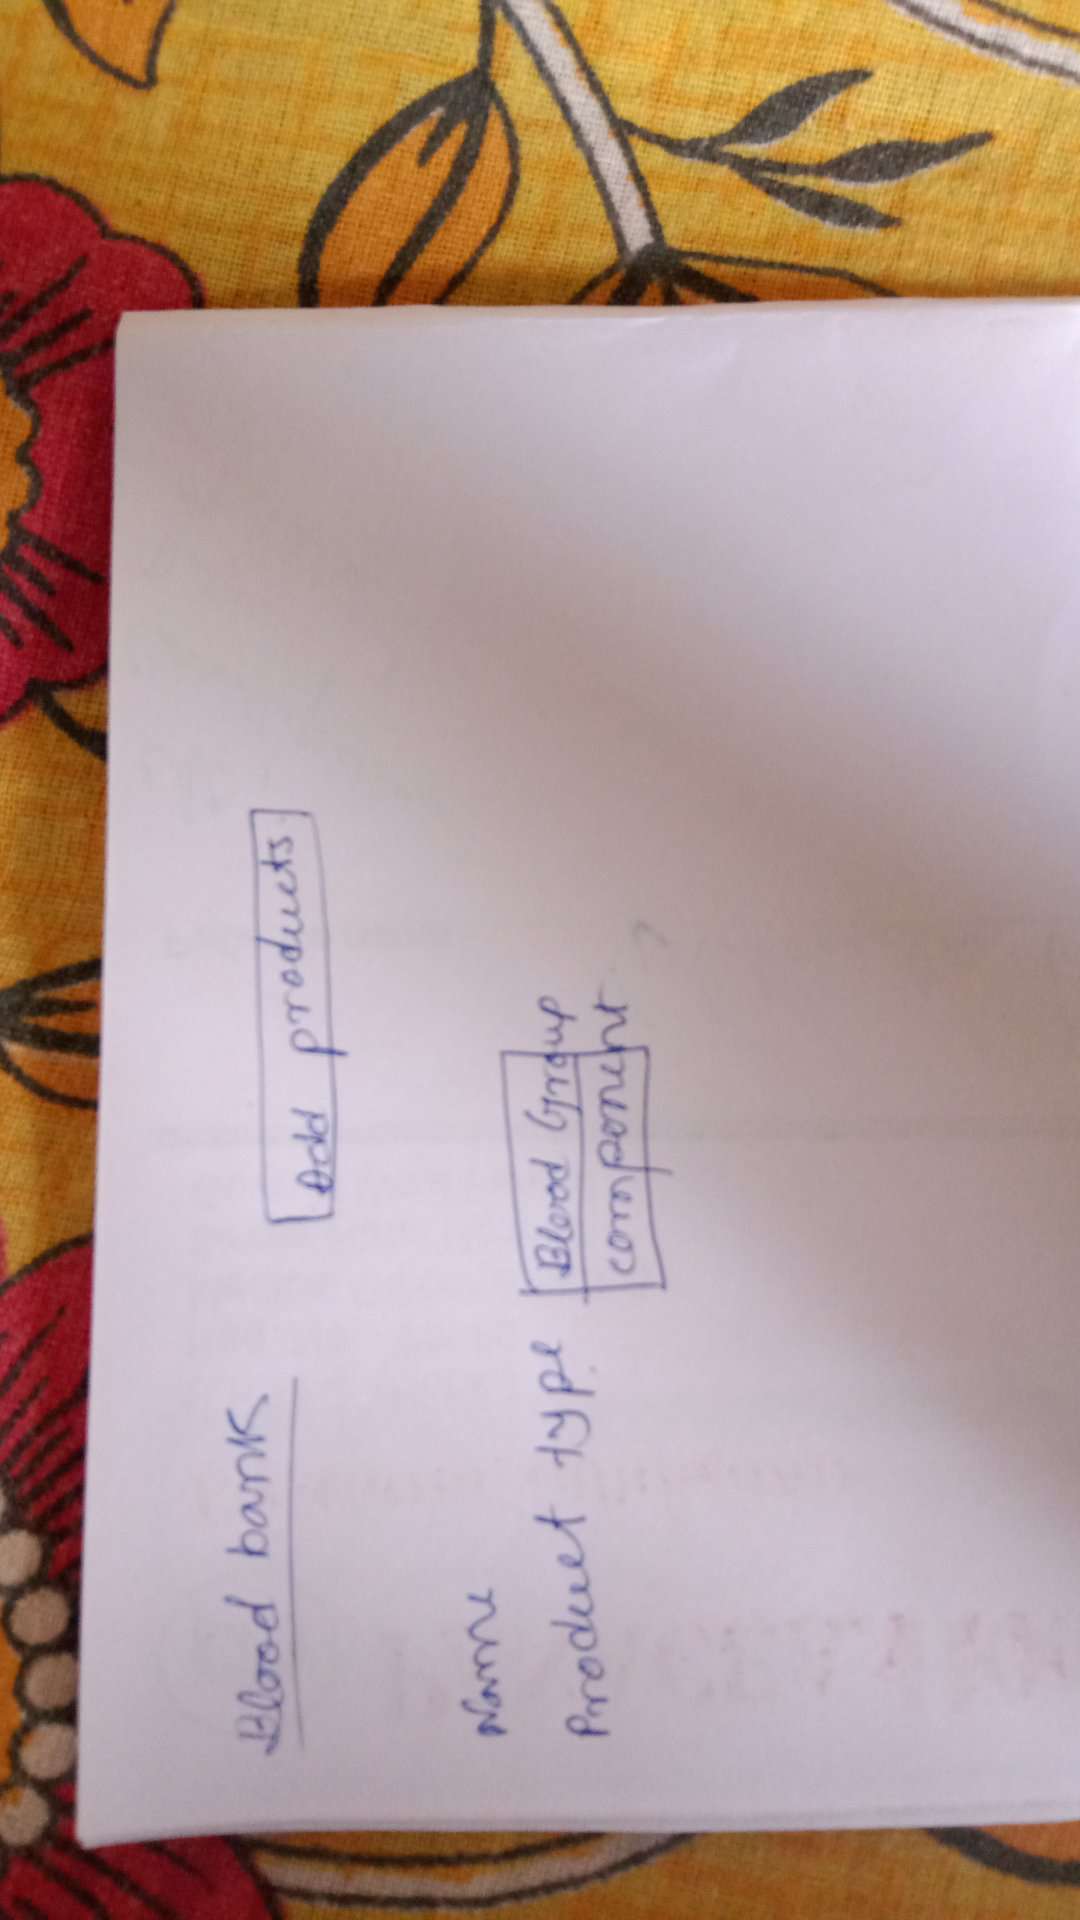 Blood bank
Add products
Name
Product type
Blood Group
component